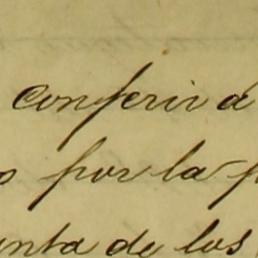 conferir á
por la
de los